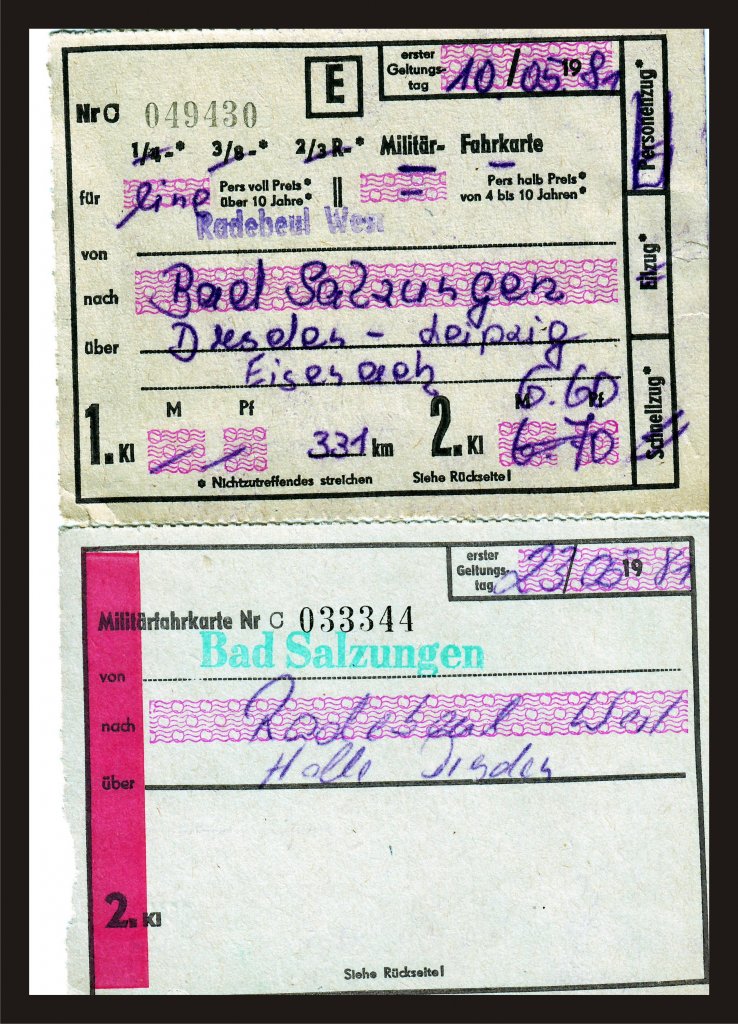 E
erster Geltungs-tag 10/05 1981
Nr C 049430
1/4-* 3/8-* 2/3 R-* Militär- Fahrkarte
für eine Pers voll Preis* über 10 Jahre* || = Pers halb Preis* von 4 bis 10 Jahren*
Radebeul West
von
nach Bad Salzungen
über Dresden - Leipzig
Eisenach
6.60
1. Kl M Pf 331 km 2. Kl M Pf 6.70
* Nichtzutreffendes streichen Siehe Rückseite!
Personenzug*
Eilzug*
Schnellzug*
erster Geltungs-tag 23/05 1981
Militärfahrkarte Nr C 033344
Bad Salzungen
von
nach Radebeul West
über Halle Dresden
2. Kl
Siehe Rückseite!